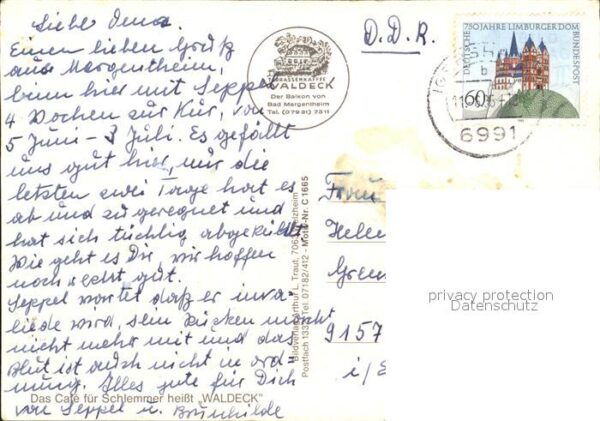 Liebe Oma.
Einen lieben Gruß
aus Mergentheim,
binn hier mit Seppel
4 Wochen zur Kur, von
5 Juni – 3 Juli. Es gefällt
uns gut hier, nur die
letzten zwei Tage hat es
ab und zu geregnet und
hat sich tüchtig abgekühlt
Wie geht es Dir, wir hoffen
noch recht gut.
Seppel wartet daß er inva
liede wird, sein Rücken macht
nicht mehr mit und das
Blut ist auch nicht in ord
nung. Alles gute für Dich
von Seppel u. Brunhilde
Das Café für Schlemmer heißt "WALDECK"
TERRASSENKAFFEE
WALDECK
Der Balkon von
Bad Mergentheim
Tel. (07931) 7311
Bildverlag Arthur L. Traut, 7063 Welzheim
Postfach 1332 Tel. 07182/412 - Motiv-Nr. C 1665
D.D.R.
750 JAHRE LIMBURGER DOM
DEUTSCHE BUNDESPOST
60
b
6991
Frau
Helen
9157
privacy protection
Datenschutz